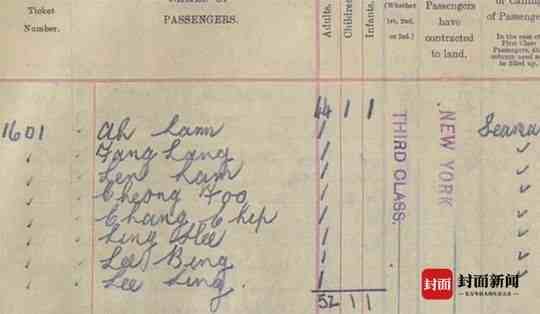 Ticket
Number.
PASSENGERS.
Adults.
Children
Infants.
(Whether
1st, 2nd,
or 3rd.)
Passengers
have
contracted
to land.
of Passenge
In the case of
First Class
Passengers, this
column need not
be filled up.
44 1 1
1601 Ah Lam
Fang Lang
Len Lam
Cheong Foo
Chang Chip
Ling Hee
Lee Bing
Lee Ling.
52 1 1
THIRD CLASS.
NEW YORK
Seama
封面 封面新闻